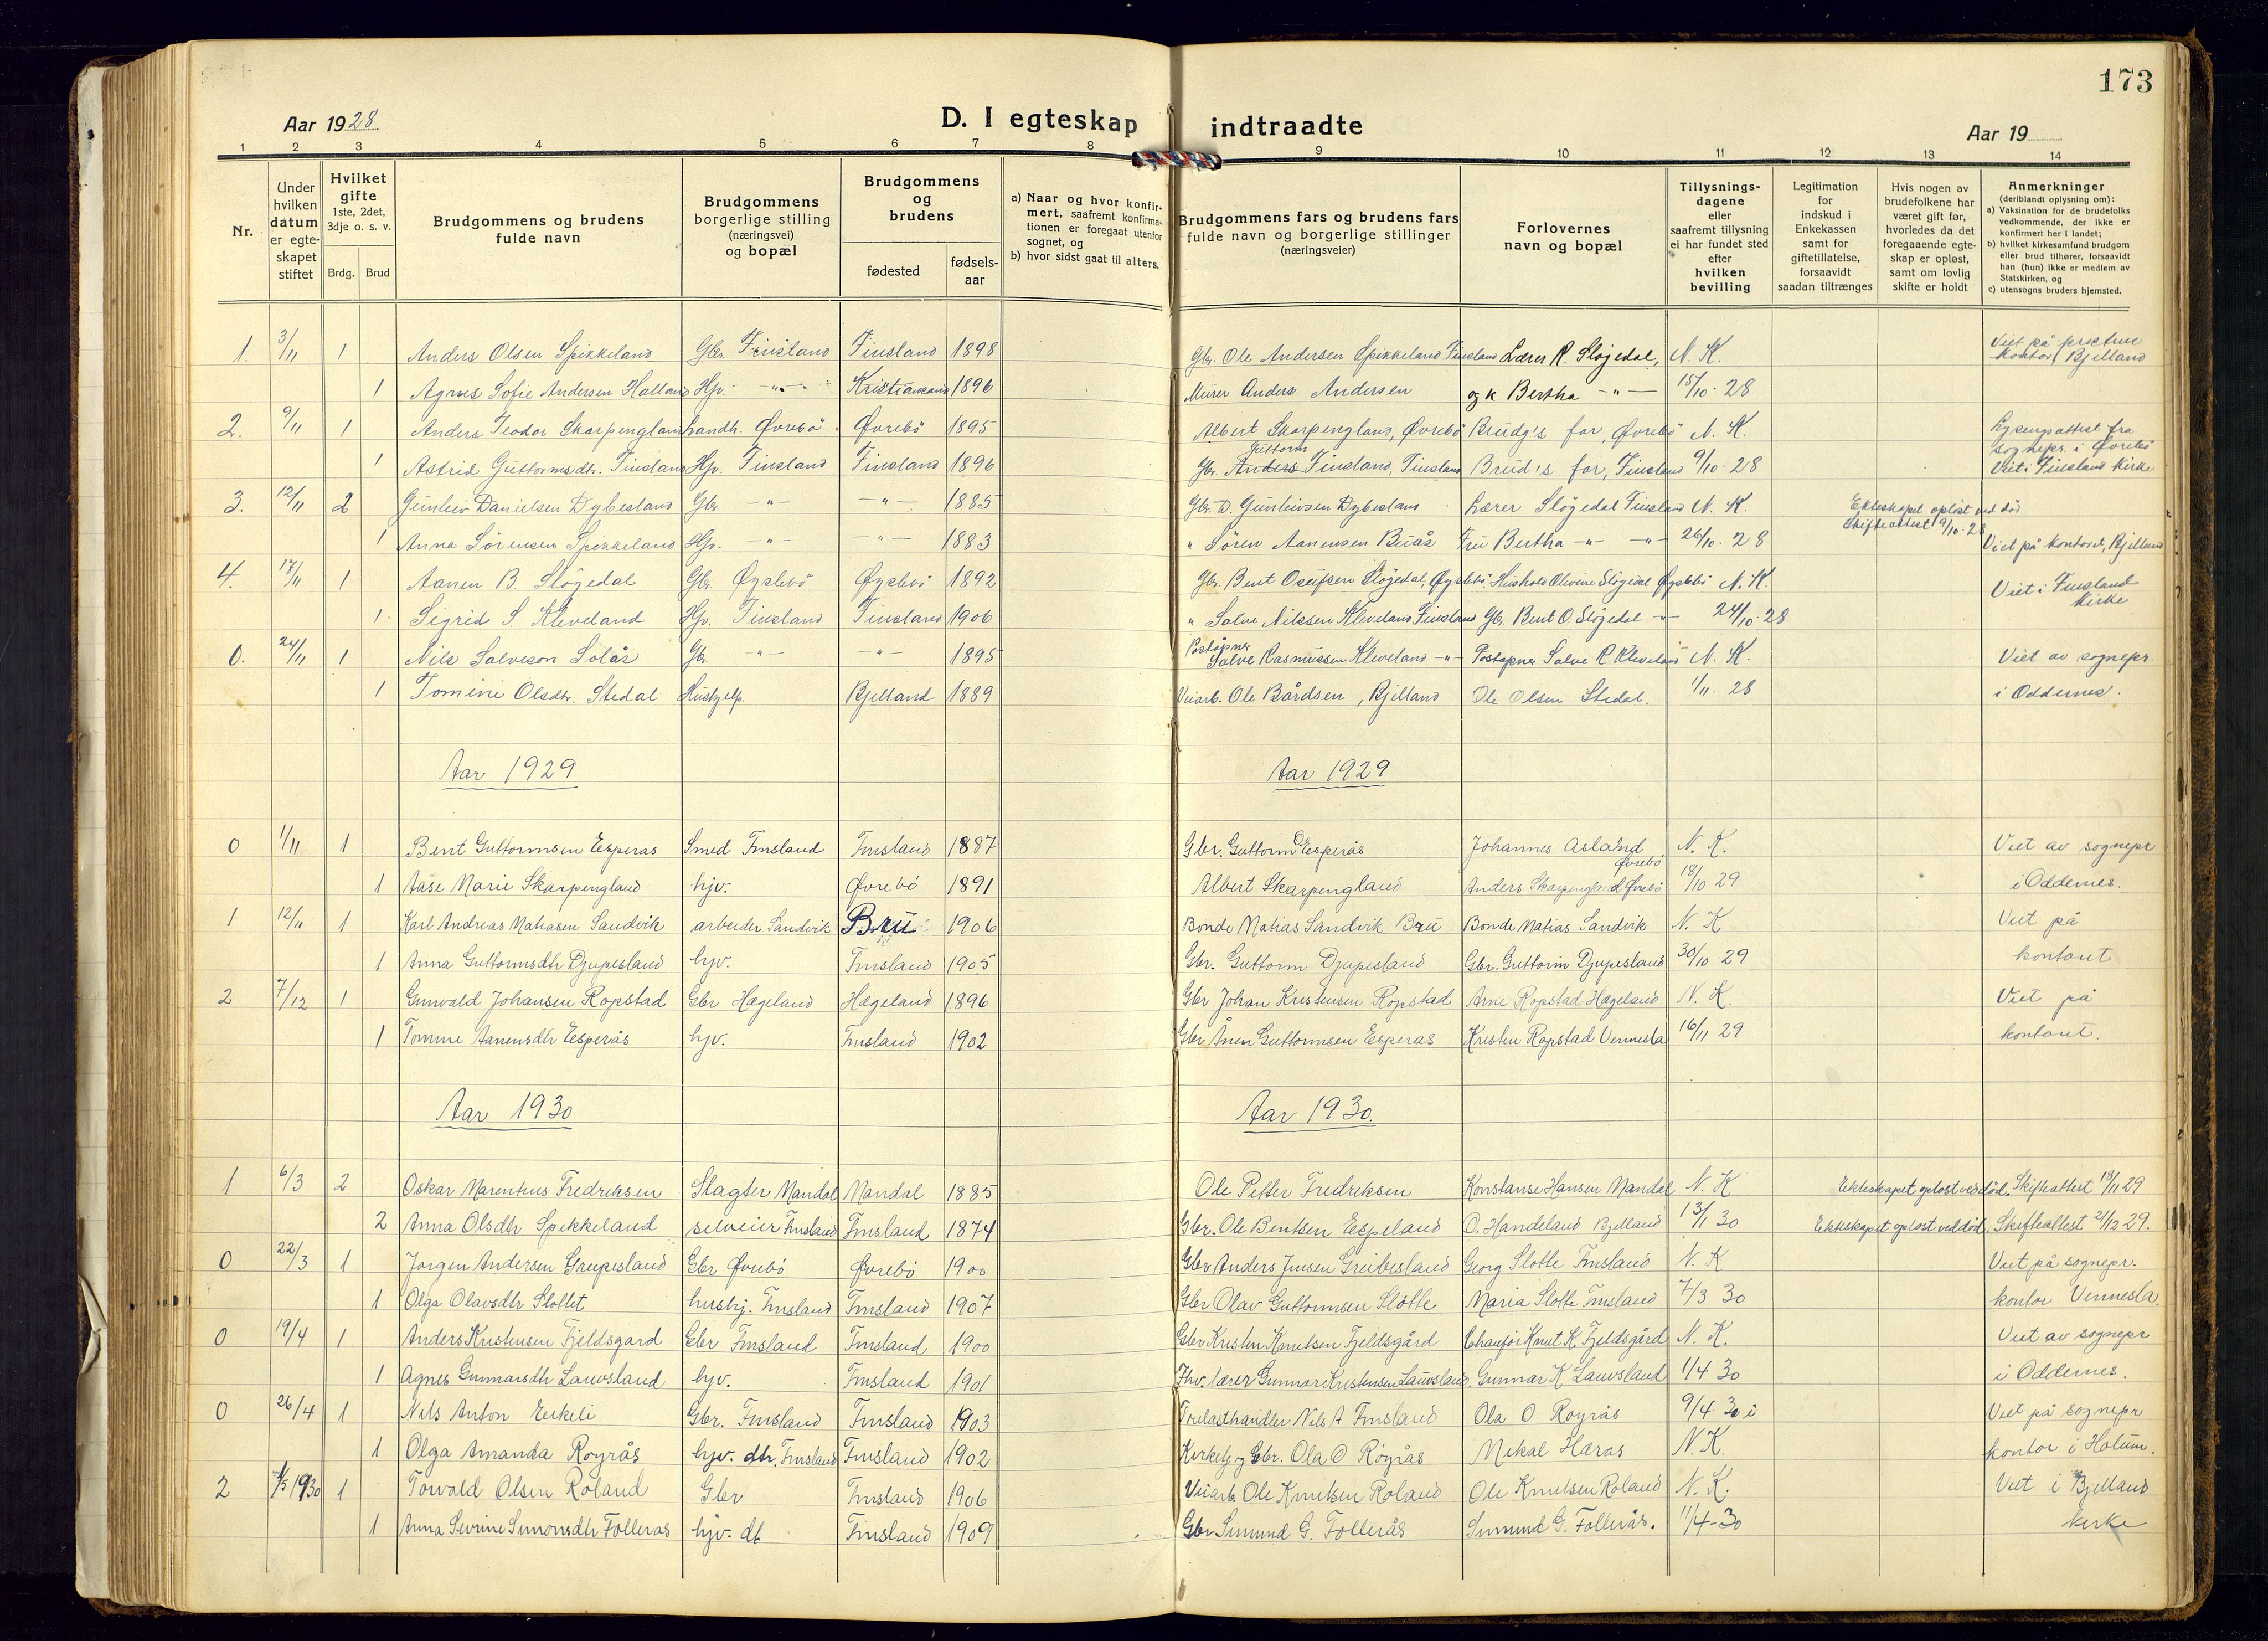 173
Aar 1928
D. I egteskap indtraadte
Aar 19
1 2 3 4 5 6 7 8 9 10 11 12 13 14
Nr.
Under hvilken datum er egte-skapet stiftet
Hvilket gifte 1ste, 2det, 3dje o. s. v.
Brdg. Brud
Brudgommens og brudens fulde navn
Brudgommens borgerlige stilling (næringsvei) og bopæl
Brudgommens og brudens
fødested
fødsels-aar
a) Naar og hvor konfir-mert, saafremt konfirma-tionen er foregaat utenfor sognet, og
b) hvor sidst gaat til alters.
Brudgommens fars og brudens fars fulde navn og borgerlige stillinger (næringsveier)
Forlovernes navn og bopæl
Tillysnings-dagene eller saafremt tillysning ei har fundet sted efter hvilken bevilling
Legitimation for indskud i Enkekassen samt for giftetillatelse, forsaavidt saadan tiltrænges
Hvis nogen av brudefolkene har været gift før, hvorledes da det foregaaende egte-skap er opløst, samt om lovlig skifte er holdt
Anmerkninger (deriblandt oplysning om):
a) Vaksination for de brudefolks vedkommende, der ikke er konfirmert her i landet;
b) hvilket kirkesamfund brudgom eller brud tilhører, forsaavidt han (hun) ikke er medlem av Statskirken, og
c) utensogns bruders hjemsted.
1. 3/11 1 Anders Olsen Spikkeland Gbr. Finsland Finsland 1898 Gbr. Ole Andersen Spikkeland Finsland Lærer R. Sløgedal, N. K. Viet på kontoret Bjelland
1 Agnes Sofie Andersen Halland Hjv. -"- Kristiansand 1896 Murer Anders Andersen og k Bertha -"- 15/10. 28
2. 9/11 1 Anders Teodor Skarpengland Landh. Øvrebö Øvrebö 1895 Albert Skarpengland, Øvrebö Brudg's far, Øvrebö N. K. Lysingsattest fra sognepr. i Øvrebö
1 Astrid Guttormsdtr. Finsland Hjv. Finsland Finsland 1896 Gbr. Anders Guttorm Finsland, Finsland Brud's far, Finsland 9/10. 28 Viet i Finsland kirke
3. 12/11 2 Gunleiv Danielsen Dybesland Gbr -"- -"- 1885 Gbr. D. Gunleivsen Dybesland Lærer Slögedal Finsland N. K. Ekteskapet opløst ved död Skifteattest 9/10. 28
1 Anna Sörensen Spikkeland Hjv. -"- -"- 1883 " Sören Aanensen Buås Fru Bertha -"- -"- 26/10. 28 Viet på kontoret, Bjelland
4. 17/11 1 Aanen B. Slögedal Gbr Øyslebö Øyslebö 1892 Gbr. Bent Osufsen Slögedal, Øyslebö. Hushold Olevine Slögedal Øyslebö N. K. Viet i Finsland kirke
1 Sigrid S. Kleveland Hjv. Finsland Finsland 1906 " Salve Nilssen Kleveland Finsland Gbr. Bent O. Slögedal -"- 24/10. 28
0. 24/11 1 Nils Salveson Solås Gbr -"- -"- 1895 Postöpner Salve Rasmussen Kleveland -"- Postöpner Salve R. Kleveland N. K. Viet av sognepr.
1 Tomine Olsdtr. Stedal Hushjelp. Bjelland 1889 Veiarb. Ole Bårdsen, Bjelland Ole Olsen Stedal. 1/11. 28 i Oddernes.
Aar 1929 Aar 1929
0 1/11 1 Bent Guttormsen Esperas Smed Finsland Finsland 1887 Gbr. Guttorm Esperås Johannes Asland Øvrebö N. K. Viet av sognepr
1 Aase Marie Skarpengland hjv. Øvrebö 1891 Albert Skarpengland Anders Skarpengland Øvrebö 18/10 29 i Oddernes.
1 12/11 1 Karl Andreas Matiasen Sandvik arbeider Sandvik Bru 1906 Bonde Matias Sandvik Bru Bonde Matias Sandvik N. K Viet på
1 Anna Guttormsdtr Djupesland hjv. Finsland 1905 Gbr. Guttorm Djupesland Gbr. Guttorm Djupesland 30/10 29 kontoret
2 7/12 1 Gunvald Johansen Ropstad Gbr Hægeland Hægeland 1896 Gbr Johan Kristensen Ropstad Arne Ropstad Hægeland N. K. Viet på
1 Tomine Aanensdtr Esperås hjv. Finsland 1902 Gbr Ånen Guttormsen Esperas Kristen Ropstad Vennesla 16/11 29 kontoret.
Aar 1930 Aar 1930.
1 6/3 2 Oskar Marentius Fredriksen Slagter Mandal Mandal 1885 Ole Petter Fredriksen Konstanse Hansen Mandal N. K Ekteskapet opløst ved død. Skifteattest 18/11 29
2 Anna Olsdtr Spikkeland selveier Finsland Finsland 1874 Gbr. Ole Bentsen Espeland O. Handeland Bjelland 13/1 30 Ekteskapet opløst ved død. Skifteattest 21/12 29.
0 22/3 1 Jørgen Andersen Greipesland Gbr Øvrebö Øvrebö 1900 Gbr Anders Jensen Greibesland Georg Slotte Finsland N. K Viet på sognepr.
1 Olga Olavsdtr Slottet hushj. Finsland Finsland 1907 Gbr Olav Guttormsen Slotte Maria Slotte Finsland 7/3 30 kontor Vennesla.
0 19/4 1 Anders Kristensen Fjeldsgard Gbr Finsland Finsland 1900 Gbr Kristen Knutsen Fjeldsgård Chauför Knut K. Fjeldsgård N. K. Viet av sognepr
1 Agnes Gunnarsdtr Lauvsland hjv. Finsland 1901 Fhv. lærer Gunnar Kristensen Lauvsland Gunnar K Lauvsland 1/4 30 i Oddernes.
0 26/4 1 Nils Anton Eikeli Gbr. Finsland Finsland 1903 Trelasthandler Nils A Finsland Ola O Røyrås 9/4 30 Viet på sognepr
1 Olga Amanda Røyrås hjv. dtr. Finsland Finsland 1902 Kirketj. og Gbr. Ola O Røyrås Mikal Haras N. K. kontor i Holum.
2 4/5 1930 1 Torvald Olsen Roland Gbr Finsland 1906 Veiarb. Ole Knutsen Roland Ole Knutsen Roland N. K. Viet i Bjelland
1 Anna Sevrine Simonsdtr Follerås hjv. dt Finsland 1909 Gbr Simund G. Follerås Simund G. Follerås. 11/4-30 kirke